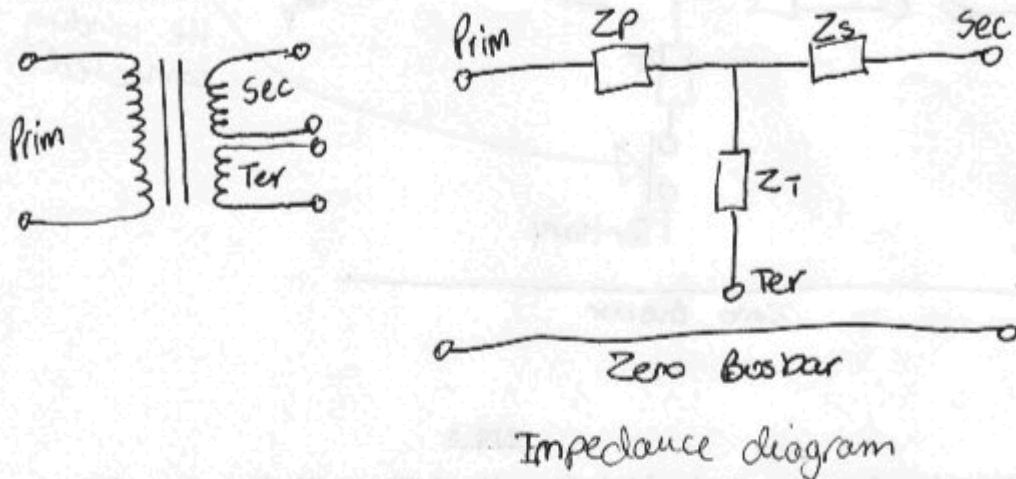 Prim
Sec
Ter
Prim
ZP
Zs
Sec
ZT
Ter
Zero Busbar
Impedance diagram